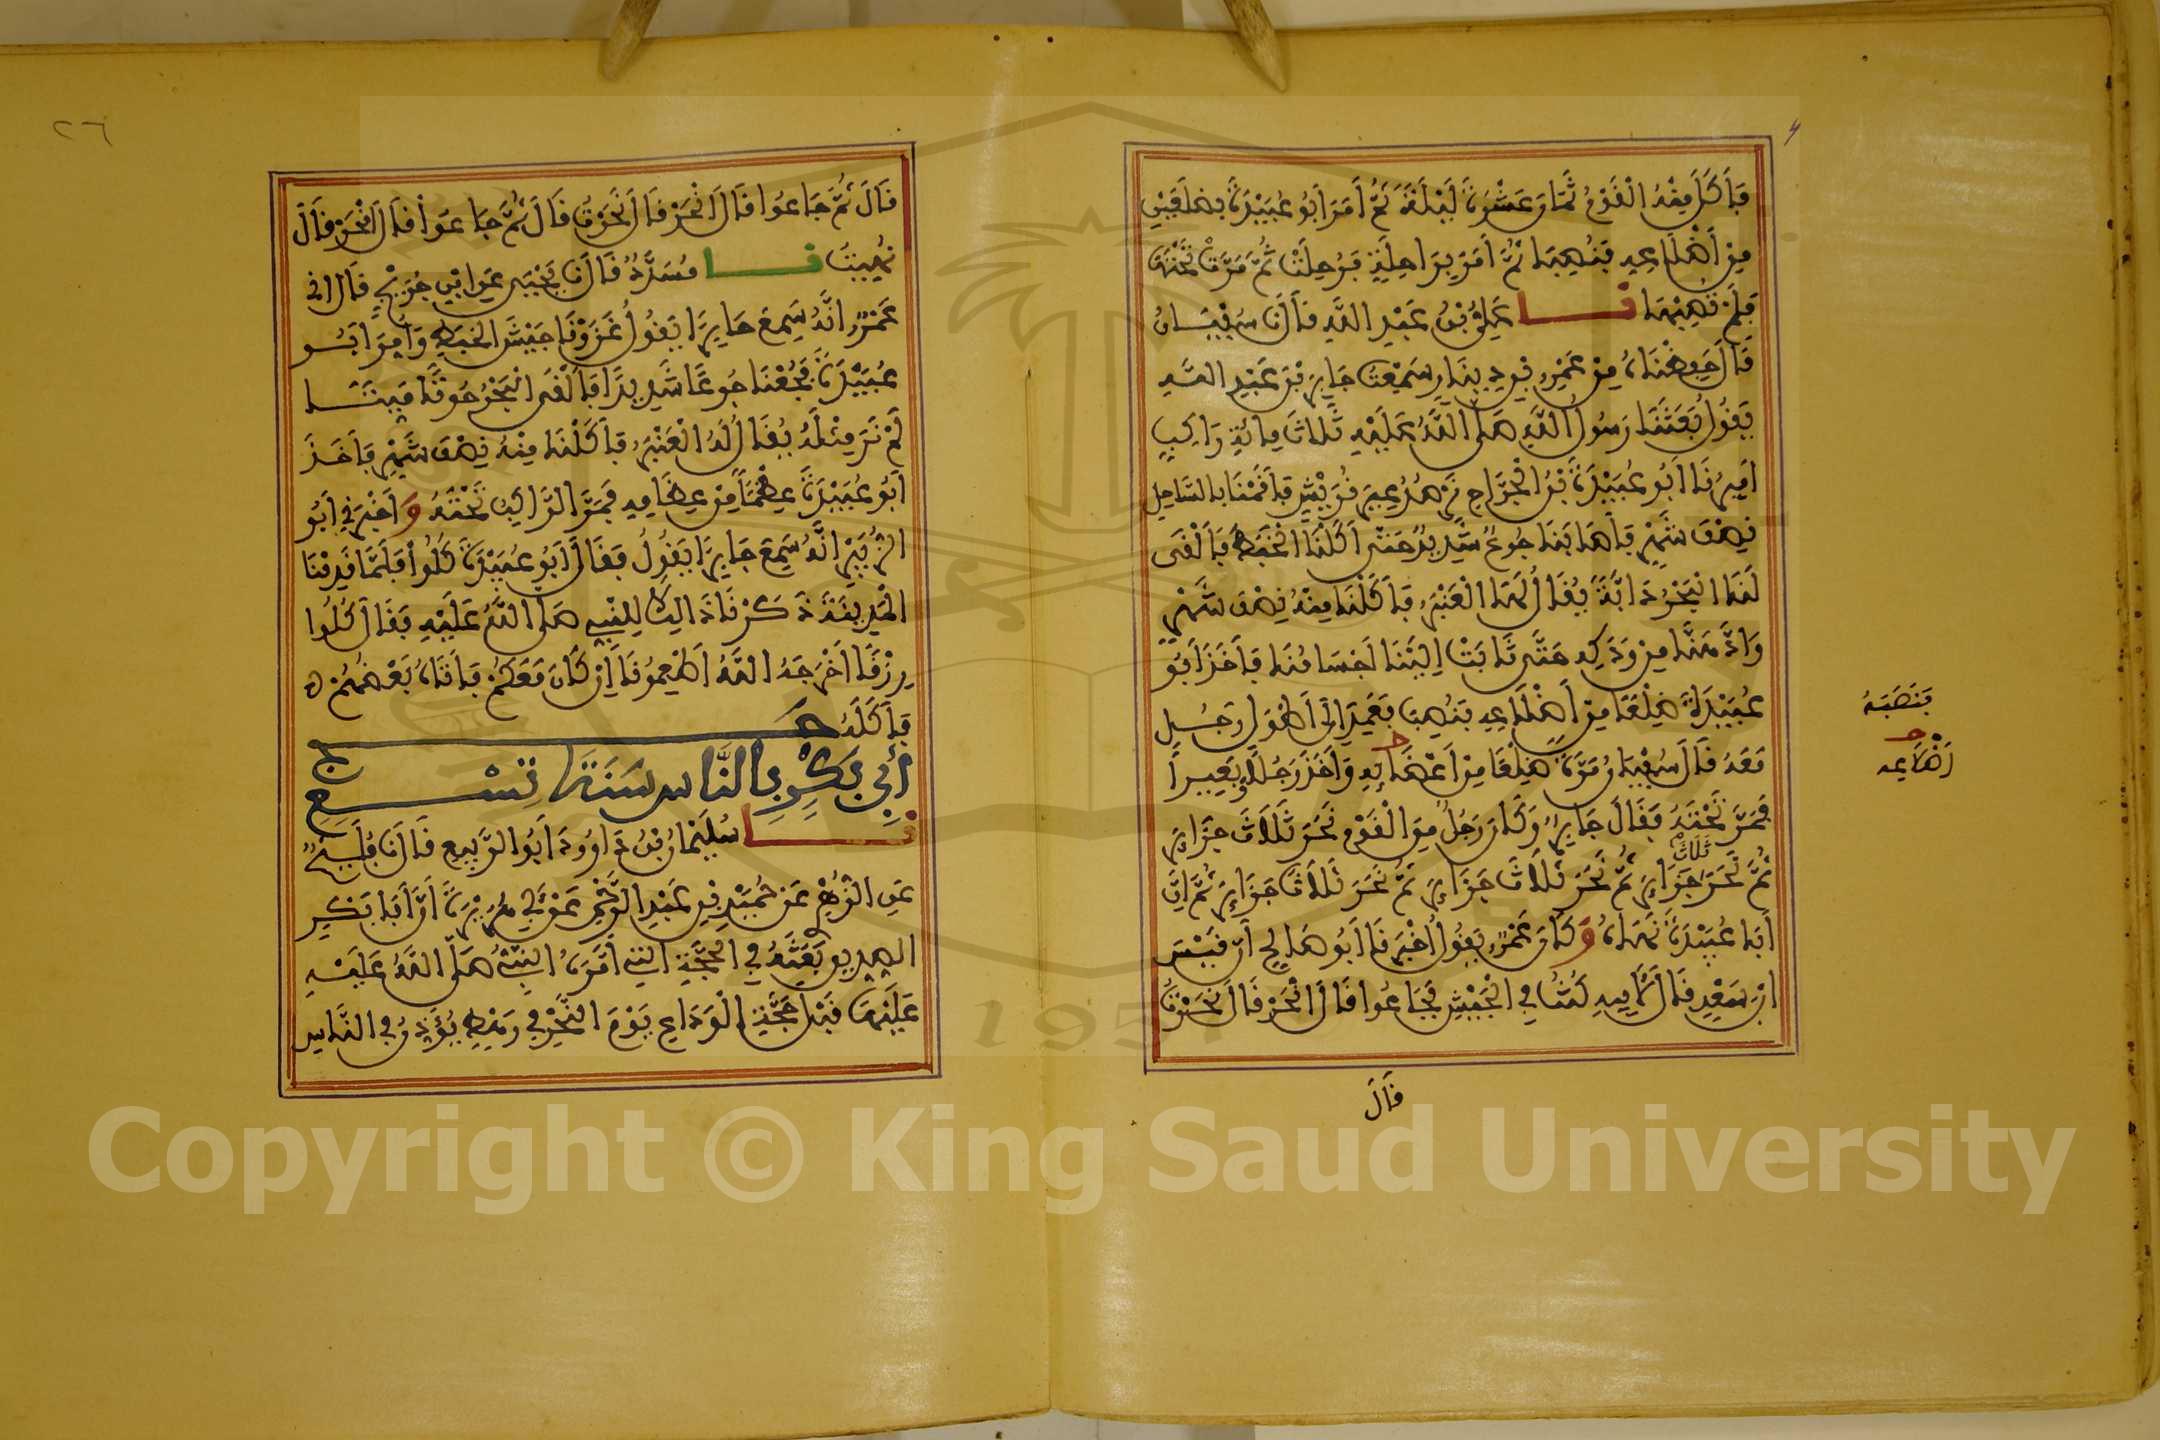 فَأَكَلَ مِنْهُ الْقَوْمُ ثَمَانَ عَشْرَةَ لَيْلَةً ثُمَّ أَمَرَ أَبُو عُبَيْدَةَ بِضِلَعَيْنِ
مِنْ أَضْلَاعِهِ فَنُصِبَا ثُمَّ أَمَرَ بِرَاحِلَةٍ فَرُحِلَتْ ثُمَّ مَرَّتْ تَحْتَهُمَا
فَلَمْ تُصِبْهُمَا نا عَلِيُّ بْنُ عَبْدِ اللَّهِ قَالَ نَا سُفْيَانُ
قَالَ حَفِظْنَاهُ مِنْ عَمْرِو بْنِ دِينَارٍ سَمِعْتُ جَابِرَ بْنَ عَبْدِ اللَّهِ
يَقُولُ بَعَثَنَا رَسُولُ اللَّهِ صَلَّى اللَّهُ عَلَيْهِ ثَلَاثَ مِائَةِ رَاكِبٍ
أَمِيرُنَا أَبُو عُبَيْدَةَ بْنُ الْجَرَّاحِ نَرْصُدُ عِيرَ قُرَيْشٍ فَأَقَمْنَا بِالسَّاحِلِ
نِصْفَ شَهْرٍ فَأَصَابَنَا جُوعٌ شَدِيدٌ حَتَّى أَكَلْنَا الْخَبَطَ فَأَلْقَى
لَنَا الْبَحْرُ دَابَّةً يُقَالُ لَهَا الْعَنْبَرُ فَأَكَلْنَا مِنْهُ نِصْفَ شَهْرٍ
وَادَّهَنَّا مِنْ وَدَكِهِ حَتَّى ثَابَتْ إِلَيْنَا أَجْسَامُنَا فَأَخَذَ أَبُو
عُبَيْدَةَ ضِلَعًا مِنْ أَضْلَاعِهِ فَنُصِبَ فَعَمِدَ إِلَى أَطْوَلِ رَجُلٍ
مَعَهُ قَالَ سُفْيَانُ مَرَّةً ضِلَعًا مِنْ أَعْضَائِهِ وَأَخَذَ رَجُلًا وَبَعِيرًا
فَمَرَّ تَحْتَهُ فَقَالَ جَابِرٌ وَكَانَ رَجُلٌ مِنَ الْقَوْمِ نَحَرَ ثَلَاثَ جَزَائِرَ
ثَلَاثَ
ثُمَّ نَحَرَ جَزَائِرَ ثُمَّ نَحَرَ ثَلَاثَ جَزَائِرَ ثُمَّ نَحَرَ ثَلَاثَ جَزَائِرَ ثُمَّ إِنَّ
أَبَا عُبَيْدَةَ نَهَاهُ وَكَانَ عَمْرٌو يَقُولُ أَخْبَرَنَا أَبُو صَالِحٍ أَنَّ قَيْسَ
ابْنَ سَعْدٍ قَالَ لِأَبِيهِ كُنْتُ فِي الْجَيْشِ فَجَاعُوا قَالَ انْحَرْ قَالَ نَحَرْتُ
قَالَ
فَنَصَبَهُ
أَضْلَاعِهِ
٢٦
قَالَ ثُمَّ جَاعُوا قَالَ انْحَرْ قَالَ نَحَرْتُ قَالَ ثُمَّ جَاعُوا قَالَ انْحَرْ قَالَ
نُهِيتُ نا مُسَدَّدٌ قَالَ نَا يَحْيَى عَنِ ابْنِ جُرَيْجٍ قَالَ اني
عَمْرٌو أَنَّهُ سَمِعَ جَابِرًا يَقُولُ غَزَوْنَا جَيْشَ الْخَبَطِ وَأُمِّرَ أَبُو
عُبَيْدَةَ فَجُعْنَا جُوعًا شَدِيدًا فَأَلْقَى الْبَحْرُ حُوتًا مَيِّتًا
لَمْ نَرَ مِثْلَهُ يُقَالُ لَهُ الْعَنْبَرُ فَأَكَلْنَا مِنْهُ نِصْفَ شَهْرٍ فَأَخَذَ
أَبُو عُبَيْدَةَ عَظْمًا مِنْ عِظَامِهِ فَمَرَّ الرَّاكِبُ تَحْتَهُ وَأَخْبَرَنِي أَبُو
الزُّبَيْرِ أَنَّهُ سَمِعَ جَابِرًا يَقُولُ فَقَالَ أَبُو عُبَيْدَةَ كُلُوا فَلَمَّا قَدِمْنَا
الْمَدِينَةَ ذَكَرْنَا ذَالِكَ لِلنَّبِيِّ صَلَّى اللَّهُ عَلَيْهِ فَقَالَ كُلُوا
رِزْقًا أَخْرَجَهُ اللَّهُ أَطْعِمُونَا إِنْ كَانَ مَعَكُمْ فَأَتَاهُ بَعْضُهُمْ
فَأَكَلَهُ حَجُّ
أَبِي بَكْرٍ بِالنَّاسِ سَنَةَ تِسْعٍ
نا سُلَيْمَانُ بْنُ دَاوُودَ أَبُو الرَّبِيعِ قَالَ نَا فُلَيْحٌ
عَنِ الزُّهْرِيِّ عَنْ حُمَيْدِ بْنِ عَبْدِ الرَّحْمَنِ عَنْ أَبِي هُرَيْرَةَ أَنَّ أَبَا بَكْرٍ
الصِّدِّيقَ بَعَثَهُ فِي الْحَجَّةِ الَّتِي أَمَّرَهُ النَّبِيُّ صَلَّى اللَّهُ عَلَيْهِ
عَلَيْهَا قَبْلَ حَجَّةِ الْوَدَاعِ يَوْمَ النَّحْرِ فِي رَهْطٍ يُؤَذِّنُ فِي النَّاسِ
1957
Copyright © King Saud University